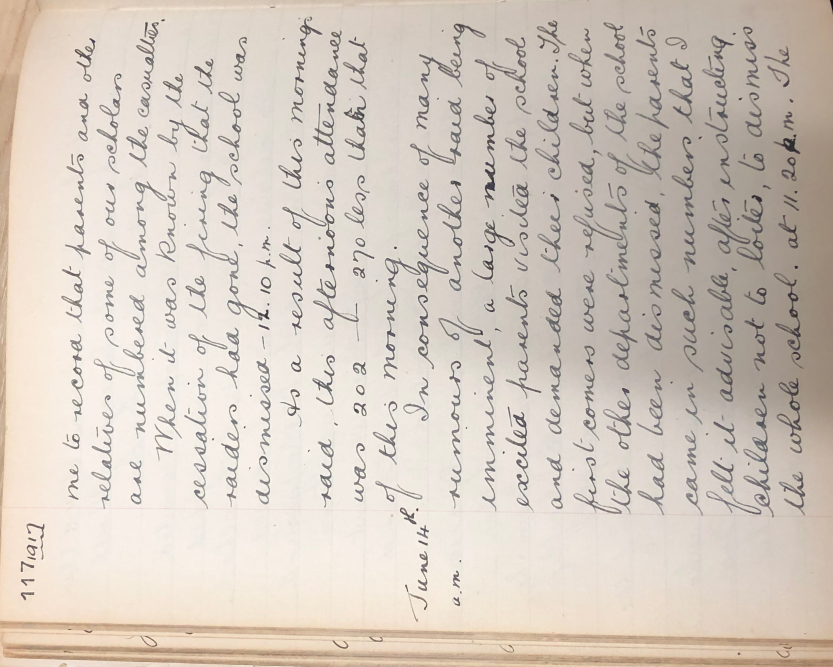 117 1917
me to record that parents and other
relatives of some of our scholars
are numbered among the casualties.
When it was known by the
cessation of the firing that the
raiders had gone, the school was
dismissed – 12.10 p.m.
As a result of this morning's
raid, this afternoon's attendance
was 202 – 270 less than that
of this morning.
June 14th. In consequence of many
a.m. rumours of another raid being
imminent, a large number of
excited parents visited the school
and demanded their children. The
first comers were refused, but when
the other departments of the school
had been dismissed, the parents
came in such numbers that I
felt it advisable, after instructing
children not to loiter, to dismiss
the whole school. at 11.20 a.m. The